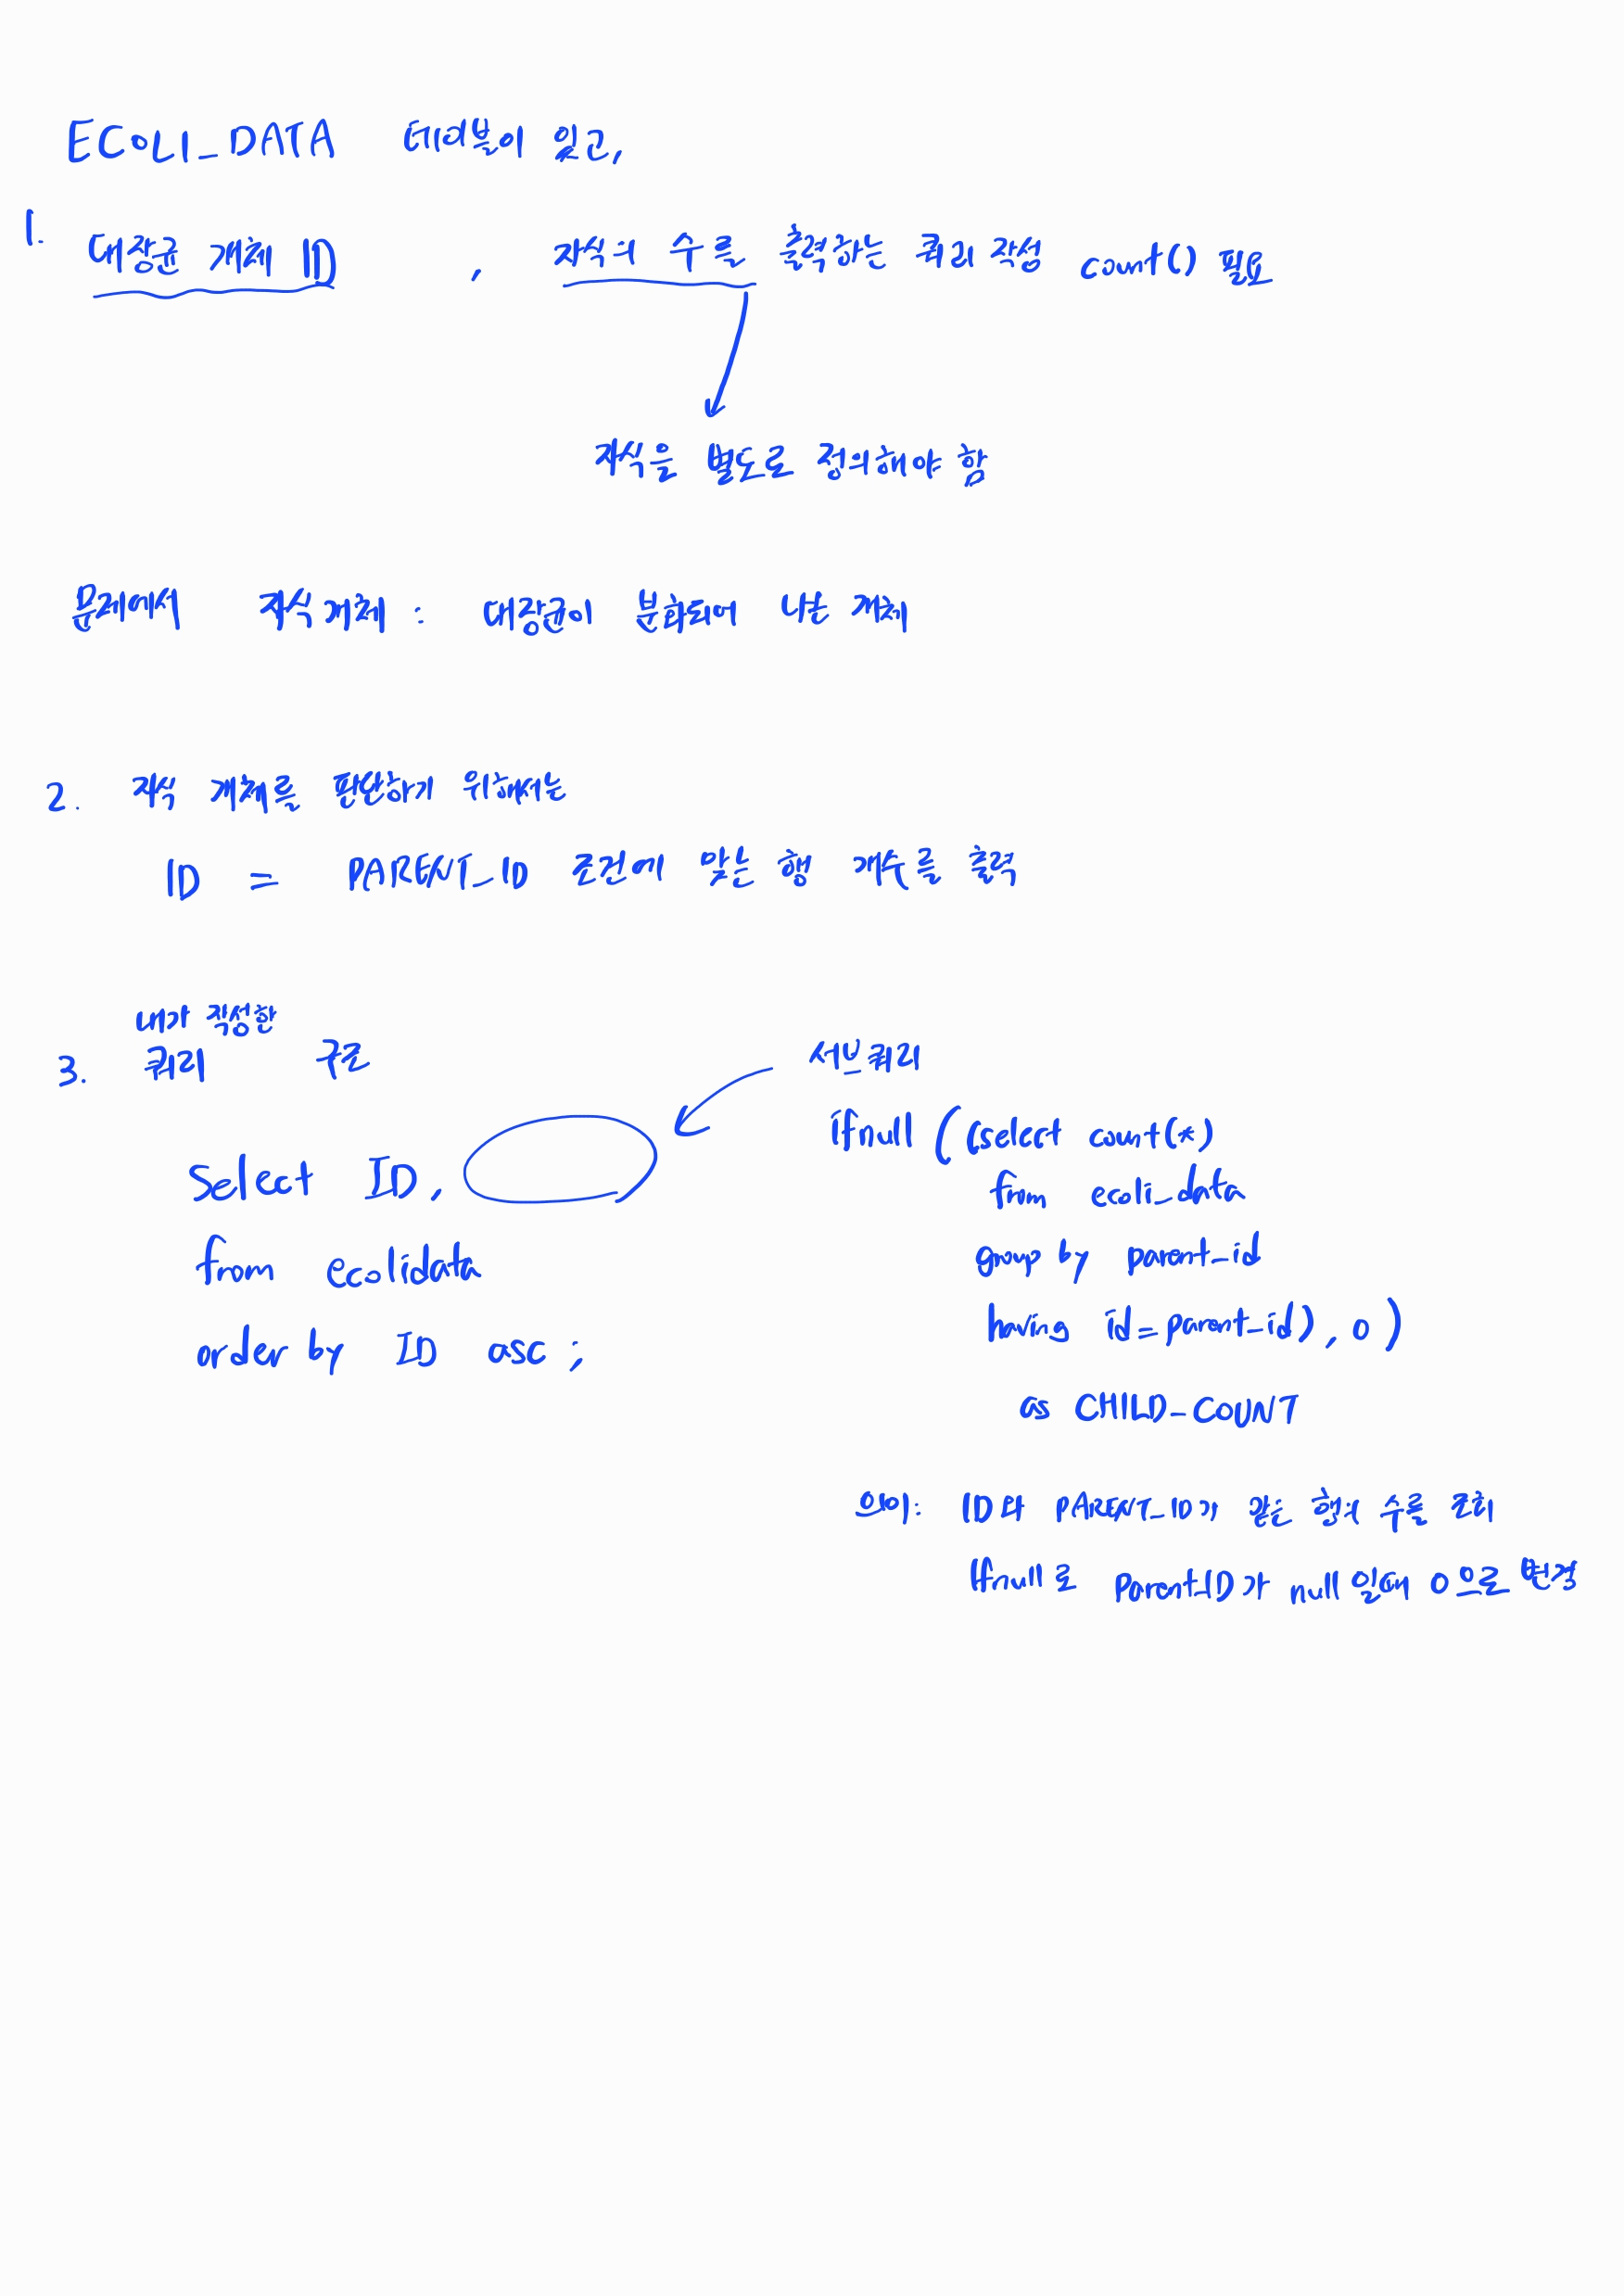 ECOLI_DATA 테이블이 있고,
1. 대장균 개체 ID , 자식의 수를 출력하는 쿼리 작성 count() 필요
자식을 별도로 정의해야 함
문제에서 자식개체 : 대장균이 분화되어 나온 개체
2. 자식 개체를 판단하기 위해서는
ID = PARENT_ID 조건에 맞는 행 개수를 출력
내가 작성한
3. 쿼리 구조
Select ID,
from ecolidata
order by ID asc ;
서브쿼리
ifnull ((select count(*)
from ecoli_data
group by parent_id
having id = parent_id), 0)
as CHILD_COUNT
의미: ID와 PARENT_ID가 같은 행의 수를 조회
Ifnull로 ParentID가 null 일때 0으로 변경